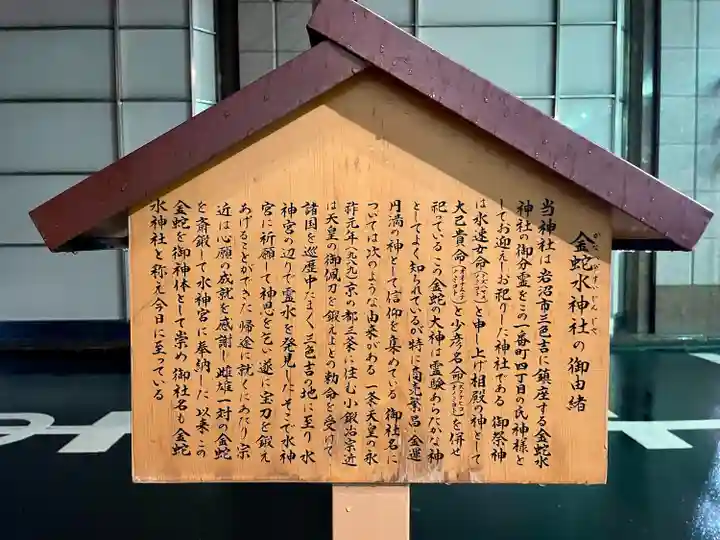 金蛇水神社の御由緒
かなへびすいじんじゃ
当神社は岩沼市三色吉に鎮座する金蛇水
神社の御分霊をこの一番町四丁目の氏神様と
してお迎えしお祀りした神社である 御祭神
は水速女命(ミズハヤメノミコト)と申し上げ相殿の神として
大己貴命(オオナムチノミコト)と少彦名命(スクナヒコナノミコト)を併せ
祀っている この金蛇の大神は霊験あらたかな神
としてよく知られているが特に商売繁昌 金運
円満の神として信仰を集めている 御社名に
ついては次のような由来がある 一条天皇の永
祚元年(九八九)京の都三条に住む小鍛治宗近
は天皇の御佩刀を鍛えよとの勅命を受けて
諸国を巡歴中たまたま三色吉の地に至り水
神宮の辺りで霊水を発見した そこで水神
宮に祈願して神恩を乞い遂に宝刀を鍛え
あげることができた 帰途に就くにあたり宗
近は心願の成就を感謝し雌雄一対の金蛇
を斎鍛して水神宮に奉納した 以来この
金蛇を御神体として崇め御社名も金蛇
水神社と称え今日に至っている